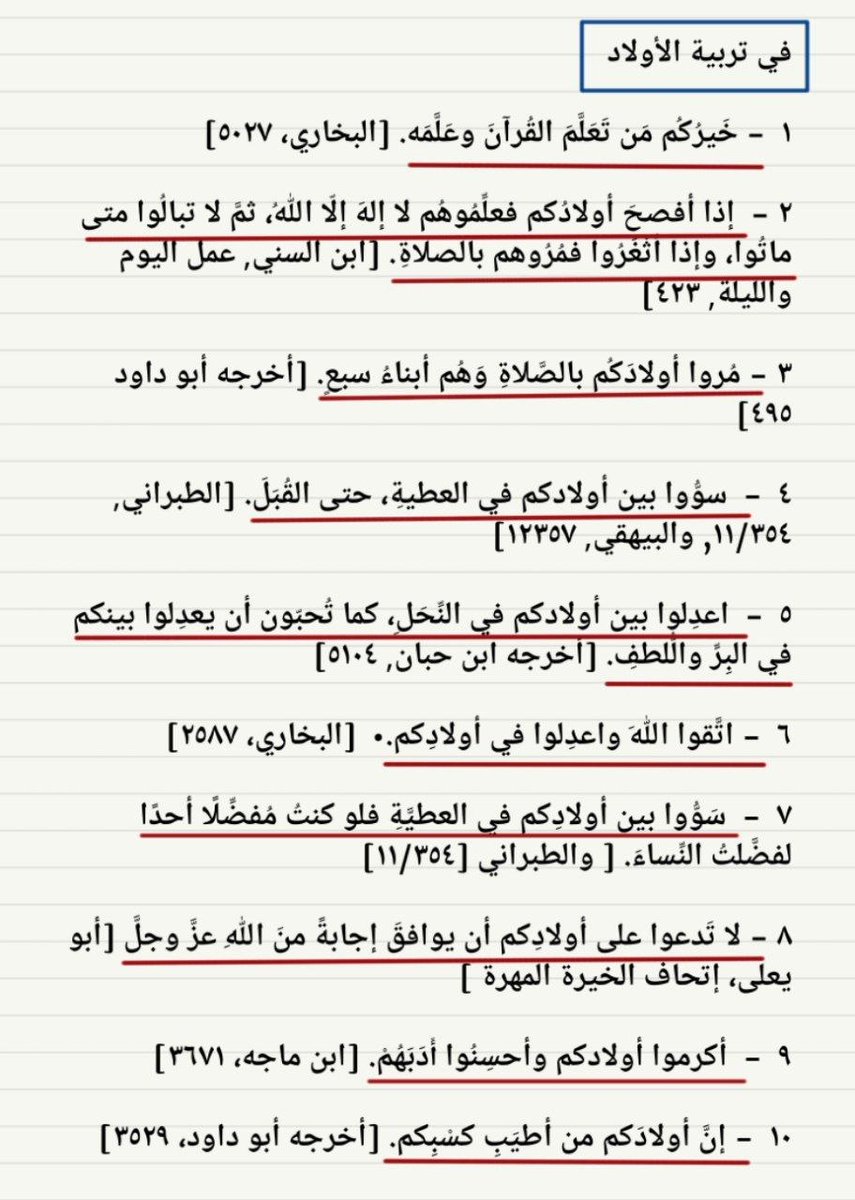 في تربية الأولاد
١ – خَيرُكُم مَن تَعَلَّمَ القُرآنَ وعَلَّمَه. [البخاري، ٥٠٢٧]
٢ – إذا أفصحَ أولادُكم فعلِّمُوهُم لا إلهَ إلّا اللهُ، ثمَّ لا تبالُوا متى
ماتُوا، وإذا اثَّغَرُوا فمُرُوهم بالصلاةِ. [ابن السني, عمل اليوم
والليلة, ٤٢٣]
٣ – مُروا أولادَكُم بالصَّلاةِ وَهُم أبناءُ سبعٍ. [أخرجه أبو داود
٤٩٥]
٤ – سوُّوا بين أولادكم في العطيةِ، حتى القُبَلَ. [الطبراني,
١١/٣٥٤, والبيهقي, ١٢٣٥٧]
٥ – اعدِلوا بين أولادكم في النِّحَلِ، كما تُحبّون أن يعدِلوا بينكم
في البِرِّ واللُطفِ. [أخرجه ابن حبان, ٥١٠٤]
٦ – اتَّقوا اللهَ واعدِلوا في أولادِكم.• [البخاري، ٢٥٨٧]
٧ – سَوُّوا بين أولادِكم في العطيَّةِ فلو كنتُ مُفضِّلًا أحدًا
لفضَّلتُ النِّساءَ. [ والطبراني [١١/٣٥٤]
٨ – لا تَدعوا على أولادِكم أن يوافقَ إجابةً منَ اللهِ عزَّ وجلَّ [أبو
يعلى، إتحاف الخيرة المهرة ]
٩ – أكرموا أولادكم وأحسِنُوا أدَبَهُمْ. [ابن ماجه، ٣٦٧١]
١٠ – إنَّ أولادَكم من أطيَبِ كسْبِكم. [أخرجه أبو داود، ٣٥٢٩]